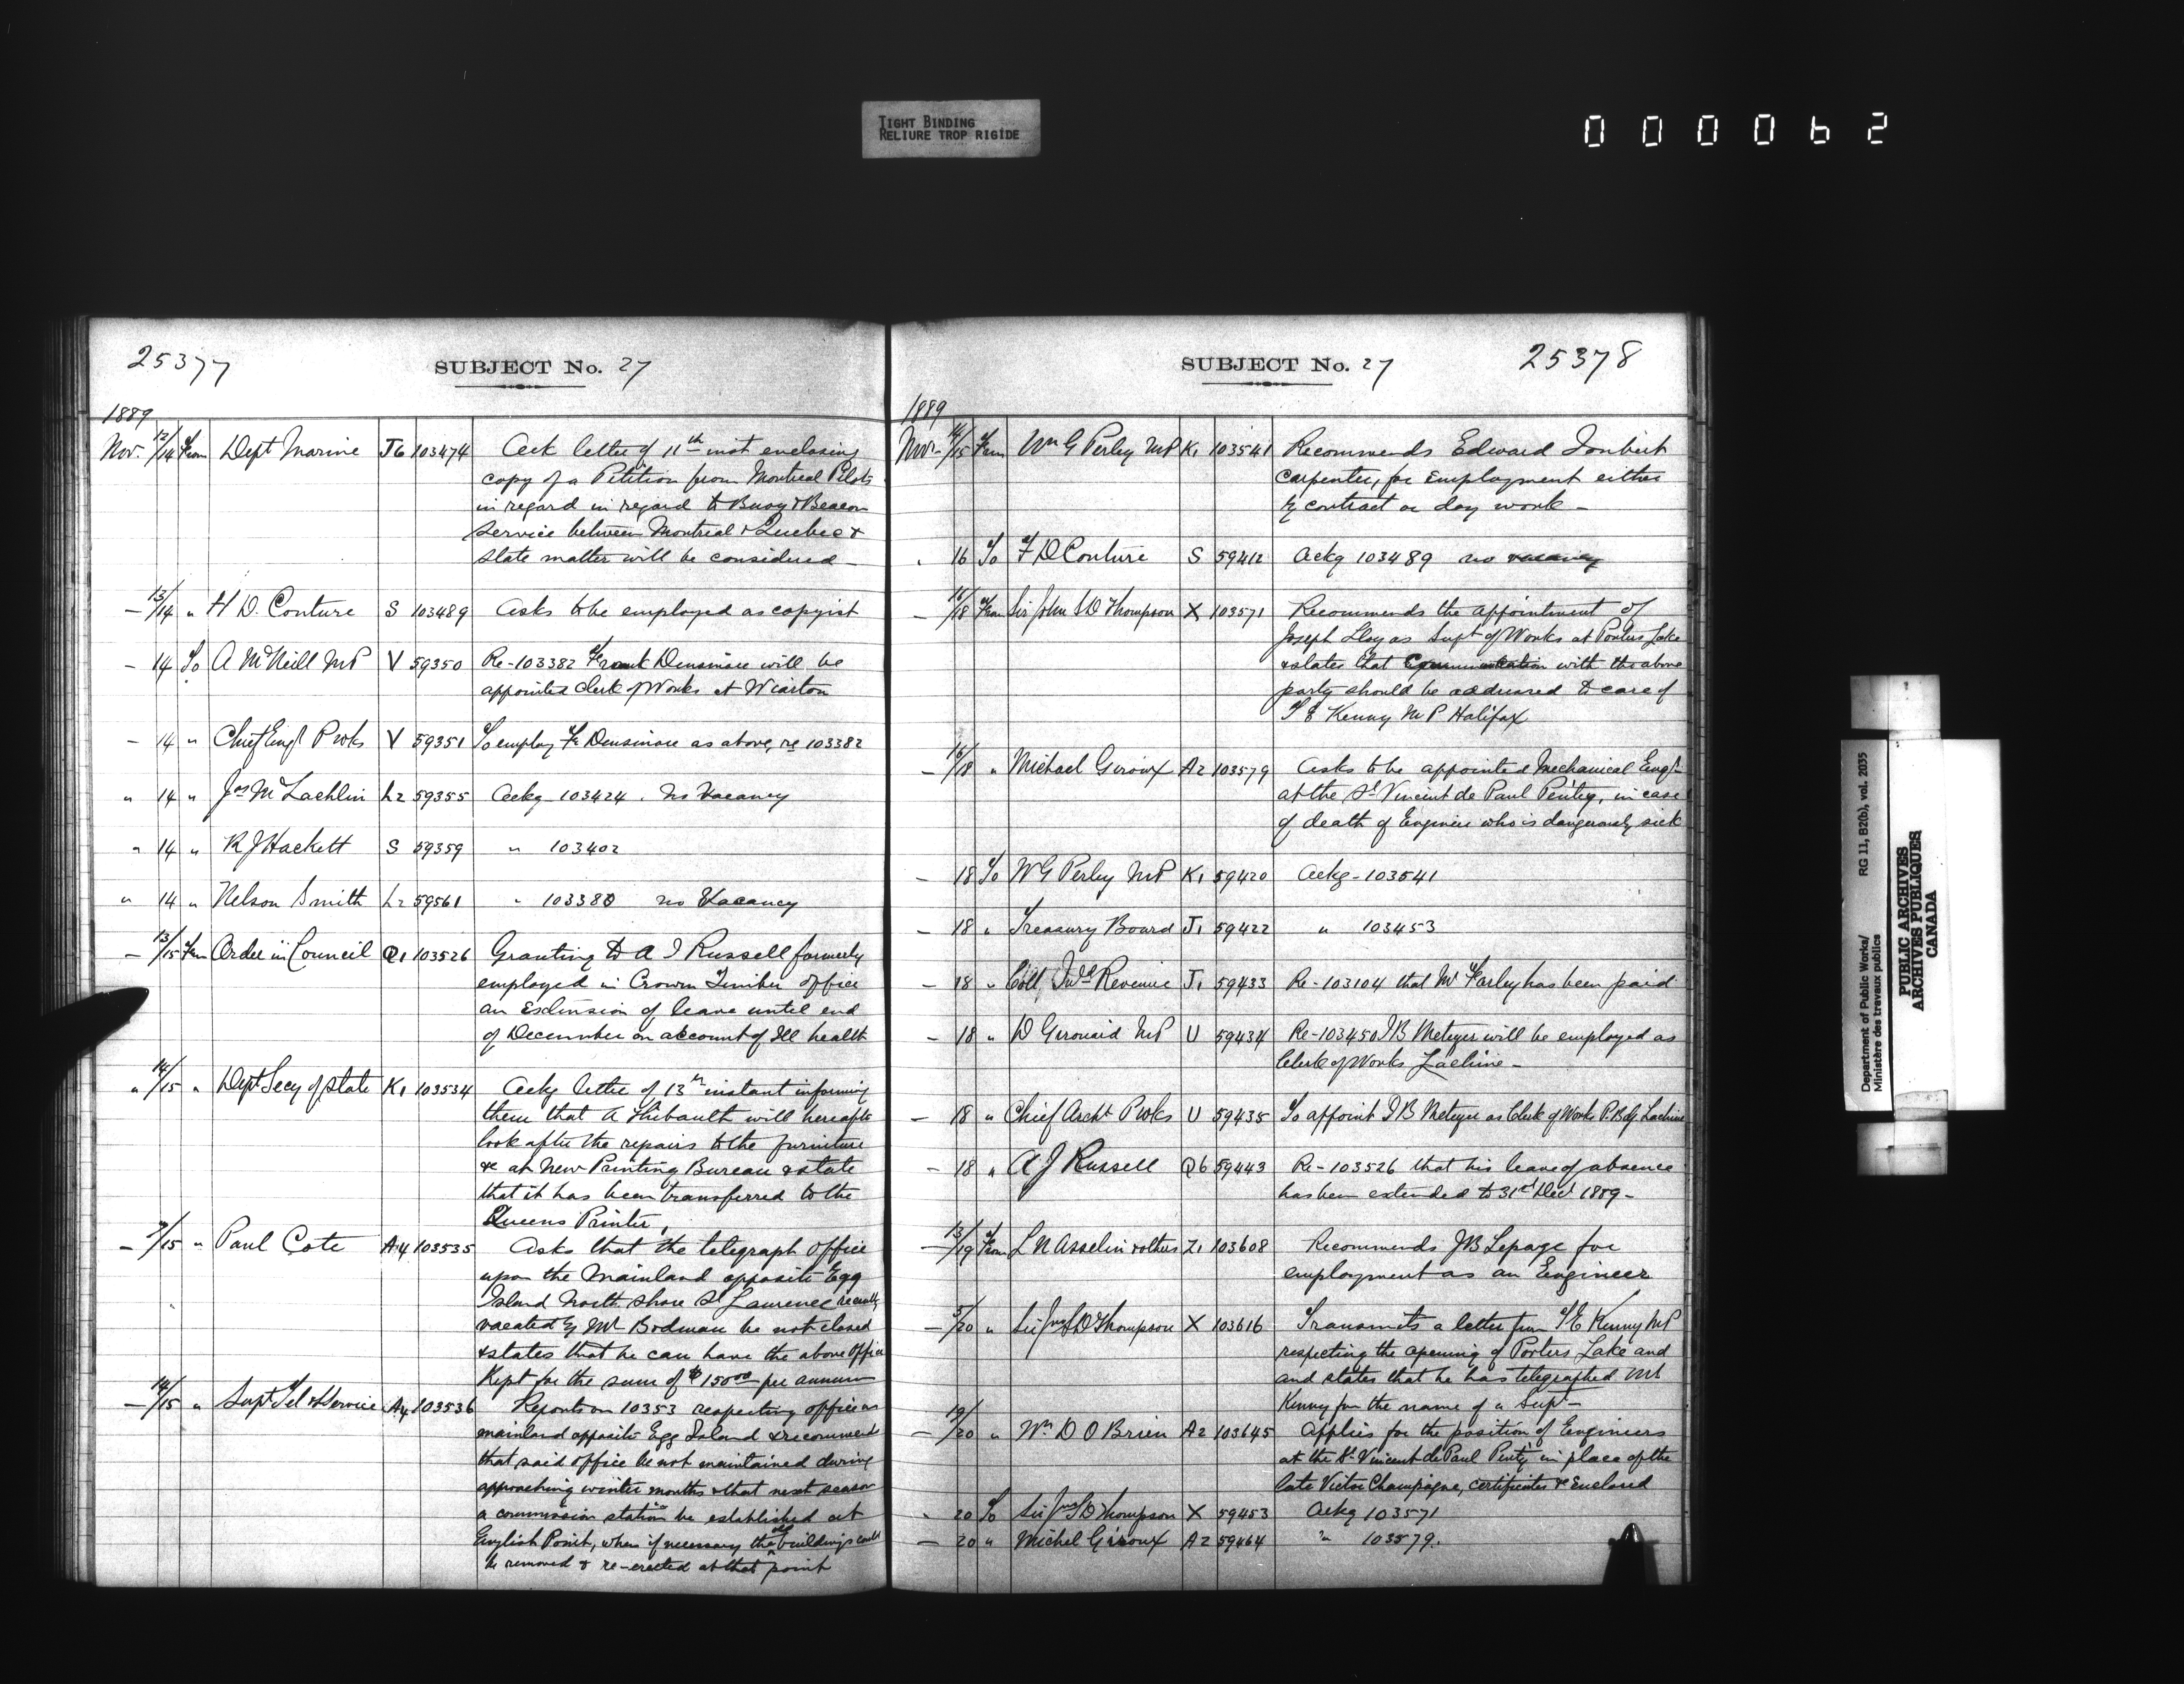 TIGHT BINDING
RELIURE TROP RIGIDE
000062
25377
SUBJECT No. 27
1889
Nov. 12/14 From Dept Marine J6 103474 Ack letter of 11th inst enclosing
copy of a Petition from Montreal Pilots
in regard in regard to Buoy & Beacon
service between Montreal & Quebec &
state matter will be considered —
— 13/14 " H D. Couture S 103489 Asks to be employed as copyist
— 14 To A McNeill MP V 59350 Re-103382 Frank Densmore will be
appointed Clerk of Works at Wiarton
— 14 " Chief Engr P Wks V 59351 To employ F. Densmore as above, re 103382
" 14 " Jas McLachlin L2 59355 Ackg 103424. No Vacancy
" 14 " R J Hackett S 59359 " 103402
" 14 " Nelson Smith L2 59561 " 103380 no Vacancy
— 13/15 From Order in Council Q1 103526 Granting to A J Russell formerly
employed in Crown Timber office
an Extension of leave until end
of December on account of Ill health
" 14/15 " Dept Secy of State K1 103534 Ackg letter of 13th instant informing
them that A Thibault will hereafter
look after the repairs to the furniture
&c at New Printing Bureau & state
that it has been transferred to the
Queens Printer,
— 7/15 " Paul Cote A4 103535 Asks that the telegraph office
upon the Mainland opposite Egg
Island North Shore St Laurence recently
vacated by Mr Bodman be not closed
& states that he can have the above office
Kept for the sum of $150.00 per annum
— 14/15 " Supt Tel & Service A4 103536 Reports on 10353 respecting office on
mainland opposite Egg Island & recommend
that said office be not maintained during
approaching winter months & that next season
a commission station be established at
English Point, when if necessary the old buildings could
be removed & re-erected at that point
SUBJECT No. 27
25378
1889
Nov. 14/15 From Wm G Perley MP K1 103541 Recommends Edward Joubert
Carpenter, for Employment either
by contract or day work —
" 16 To F D Couture S 59412 Ackg 103489 no vacancy
— 16/18 From Sir John S D Thompson X 103571 Recommends the appointment of
Joseph Lloy as Supt of Works at Porters Lake
& states that Communication with the above
party should be addressed to care of
T E Kenny M P Halifax
— 16/18 " Michael Geroux A2 103579 Asks to be appointed Mechanical Engr
at the St Vincent de Paul Penty, in case
of death of Engineer who is dangerously sick
— 18 To W G Perley MP K1 59420 Ackg-103541
— 18 " Treasury Board J1 59422 " 103453
— 18 " Coll, Inld Revenue J1 59433 Re-103104 that Mr Farley has been paid
— 18 " D Gerouard MP U 59434 Re-103450 J B Meteyer will be employed as
Clerk of Works Lachine —
— 18 " Chief Archt P Wks U 59435 To appoint J B Meteyer as Clerk of Works P. Bdg Lachine
— 18 " A J Russell Q6 59443 Re-103526 that his leave of absence
has been extended to 31st Decr 1889 —
— 13/19 From L N Asselin & others Z1 103608 Recommends J B Lepage for
employment as an Engineer
— 5/20 " Sir Jno S D Thompson X 103616 Transmits a letter from T E Kenny MP
respecting the opening of Porters Lake and
and states that he has telegraphed Mr
Kenny for the name of a Supt —
— 19/20 " Wm D O Brien A2 103645 Applies for the position of Engineers
at the St Vincent de Paul Penty in place of the
late Victor Champagne, certificates &c Enclosed
" 20 To Sir Jno S D Thompson X 59453 Ackg 103571
— 20 " Michel Giroux A2 59464 " 103579.
Department of Public Works/ RG 11, B2(b), vol. 2035
Ministère des travaux publics
PUBLIC ARCHIVES
ARCHIVES PUBLIQUES
CANADA